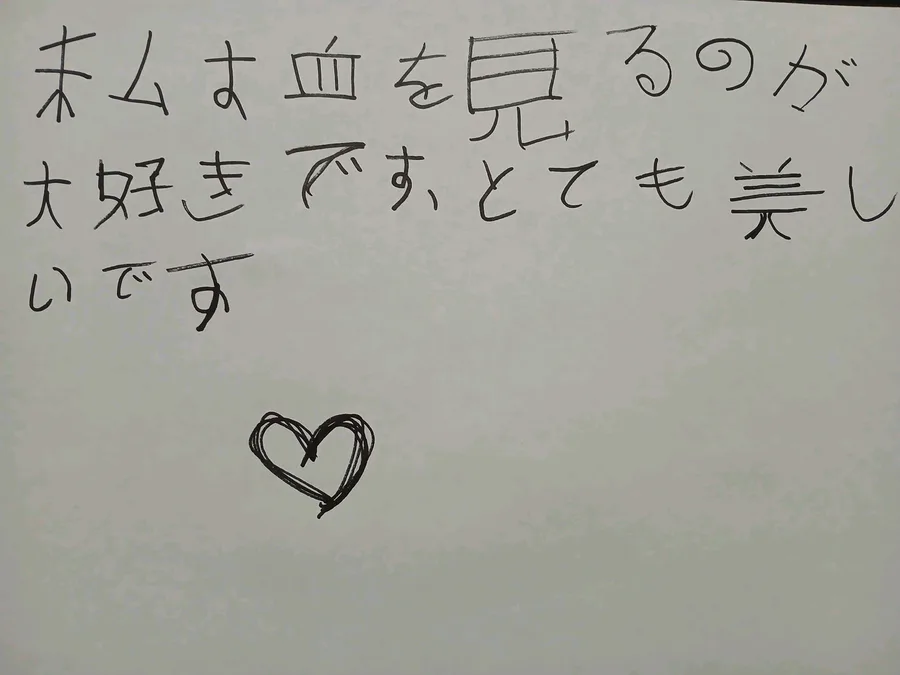 私は血を見るのが
大好きです、とても美し
いです